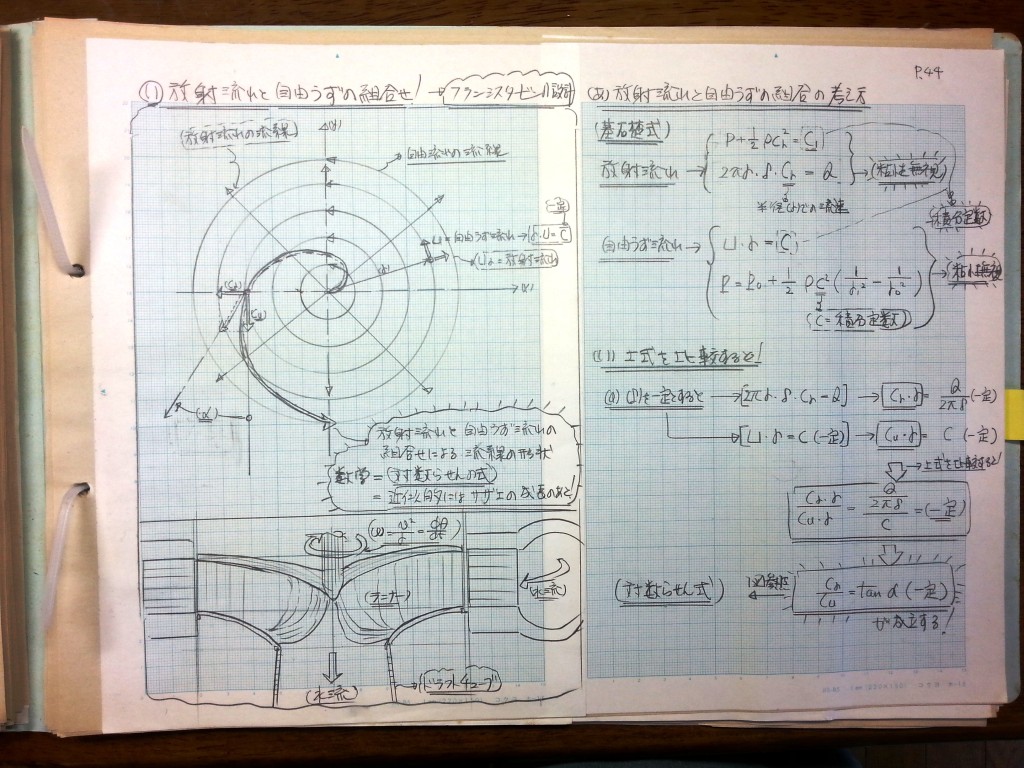 P.44
(1) 放射流れと自由うずの組合せ! → フランシスタービン設計
(放射流れの流線)
自由流れの流線
(一定)
u = 自由うず流れ → r·u = C
= 放射流れ
(Cr)
(Cu)
(α)
放射流れと自由うず流れの
組合せによる流線の形状
数学 = (対数らせんの式)
= 近似的にはサザエの成長のあと!
(水流)
(水流)
→ ドラフトチューブ
(あ) 放射流れと自由うずの組合の考え方
(基礎式)
放射流れ →
P + 1/2 ρCr² = [C]
2πr·δ·Cr = Q
→ (粘性無視)
半径(r)での流速
(積分定数)
自由うず流れ →
U·r = [C]
P = P₀ + 1/2 ρC² (1/r₁² − 1/r₀²)
→ 粘性無視
(C = 積分定数)
(1) 上式を比較すると!
→ [2πr·δ·Cr = Q] → Cr·r = Q/2πδ (一定)
→ [U·r = C (一定)] → Cu·r = C (一定)
→ 上式を比較すると!
Cr·r / Cu·r = (Q/2πδ) / C = (一定)
(対数らせん式)
Cr/Cu = tan α (一定)
が成立する!